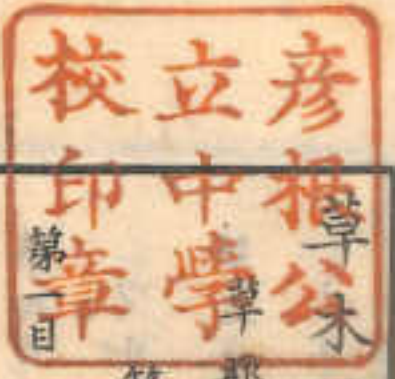 彦根公
立中學
校印章
草木
草
第一目